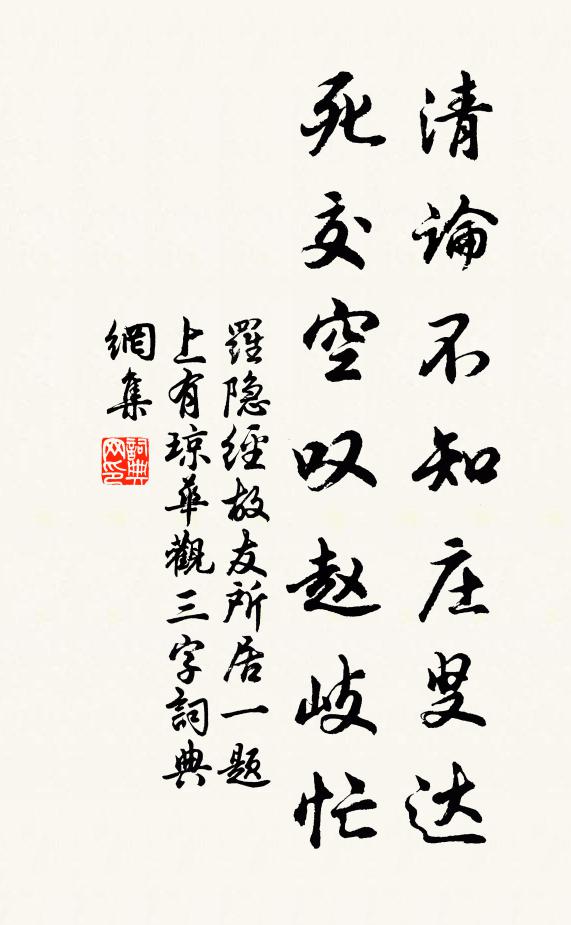 清論不知庄叟达
死交空叹赵岐忙
羅隐經故友所居一题
上有琼华觀三字詞典
網集
詞典网印